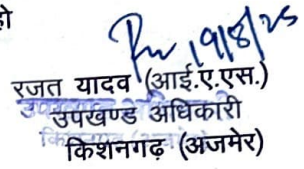 हो
19/8/25
रजत यादव (आई.ए.एस.)
उपखण्ड अधिकारी
किशनगढ़ (अजमेर)